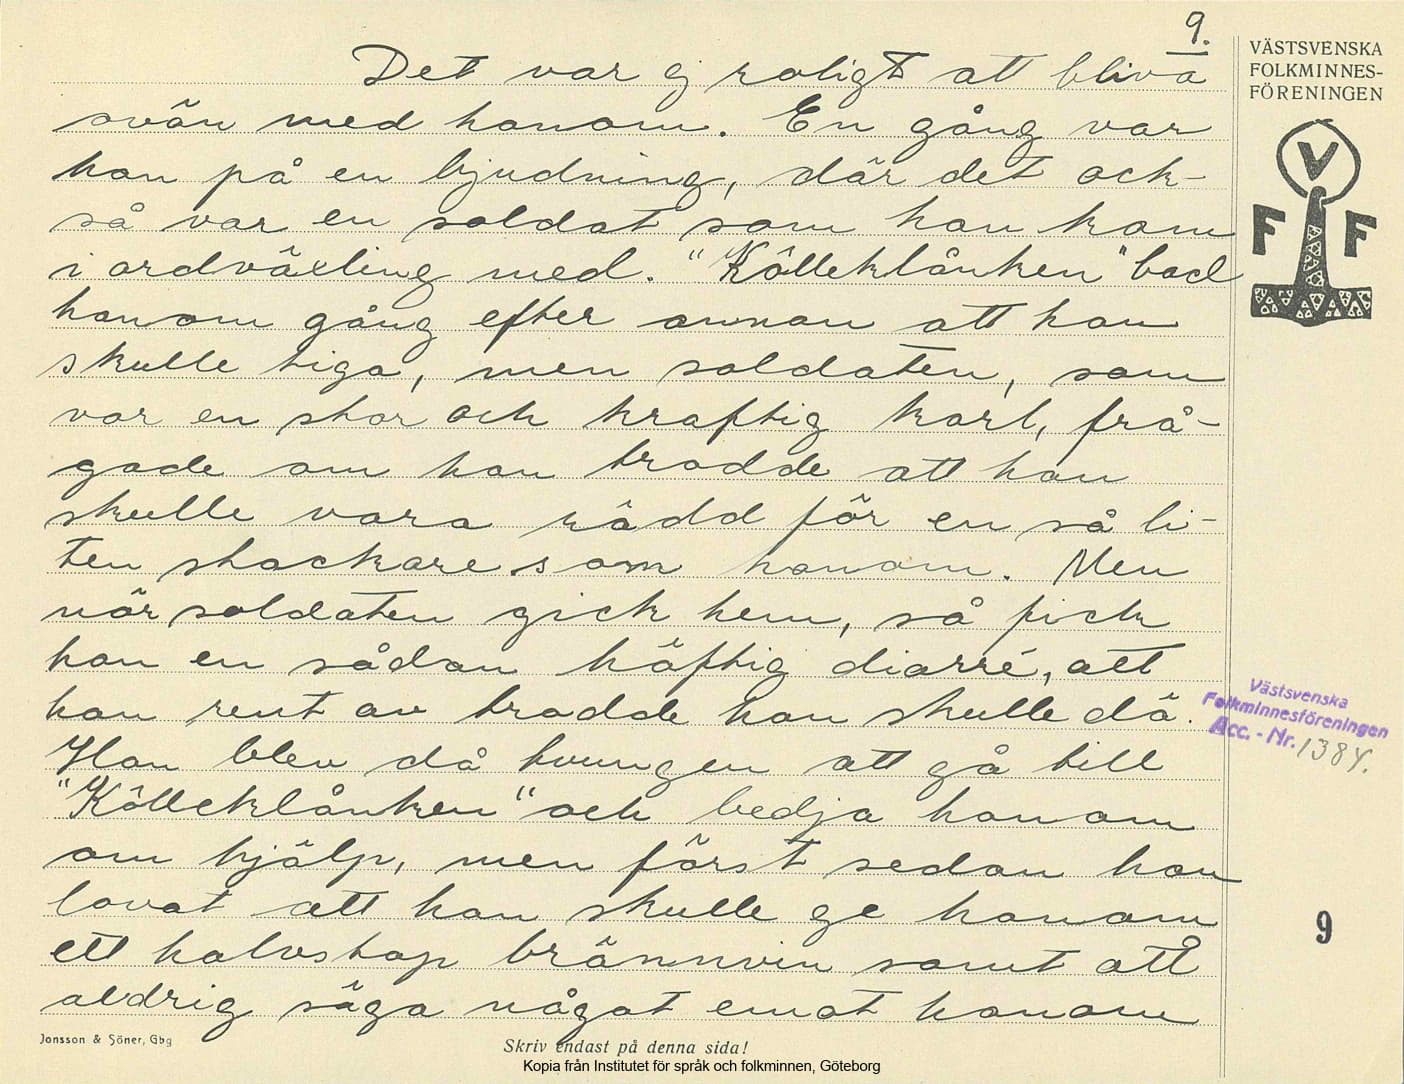 9.
Det var ej roligt att bliva
ovän med honom. En gång var
han på en bjudning, där det ock-
så var en soldat som han kom
i ordväxling med. "Kölleklånken" bad
honom gång efter annan att han
skulle tiga, men soldaten, som
var en stor och kraftig karl, frå-
gade om han trodde att han
skulle vara rädd för en så li-
ten stackare som honom. Men
när soldaten gick hem, så fick
han en sådan häftig diarré, att
han rent av trodde han skulle dö.
Han blev då tvungen att gå till
"Kölleklånken" och bedja honom
om hjälp, men först sedan han
lovat att han skulle ge honom
ett halvstop brännvin samt att
aldrig säga något emot honom
VÄSTSVENSKA
FOLKMINNES-
FÖRENINGEN
V
F F
Västsvenska
Folkminnesföreningen
Acc. - Nr. 1384.
9
Jonsson & Söner, Gbg
Skriv endast på denna sida!
Kopia från Institutet för språk och folkminnen, Göteborg